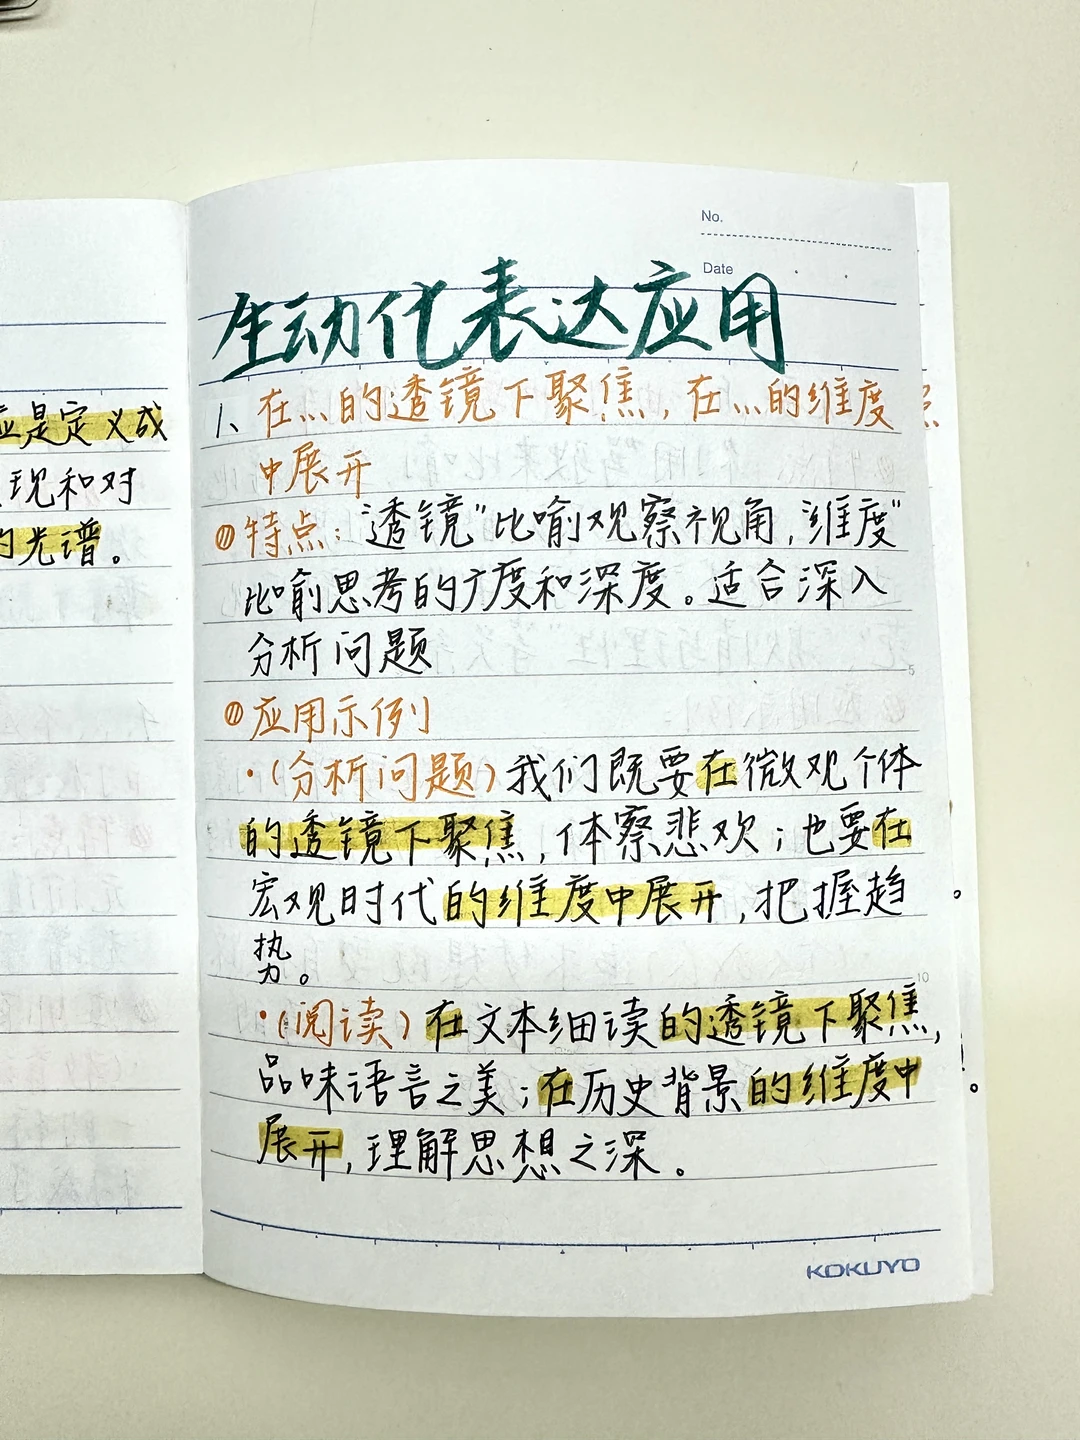 是定义成
现和对
光谱。
No.
Date
生动化表达应用
1、在…的透镜下聚焦,在…的维度
中展开
特点:“透镜”比喻观察视角,“维度”
比喻思考的广度和深度。适合深入
分析问题
应用示例
·(分析问题)我们既要在微观个体
的透镜下聚焦,体察悲欢;也要在
宏观时代的维度中展开,把握趋
势。
·(阅读)在文本细读的透镜下聚焦,
品味语言之美;在历史背景的维度中
展开,理解思想之深。
5
10
KOKUYO